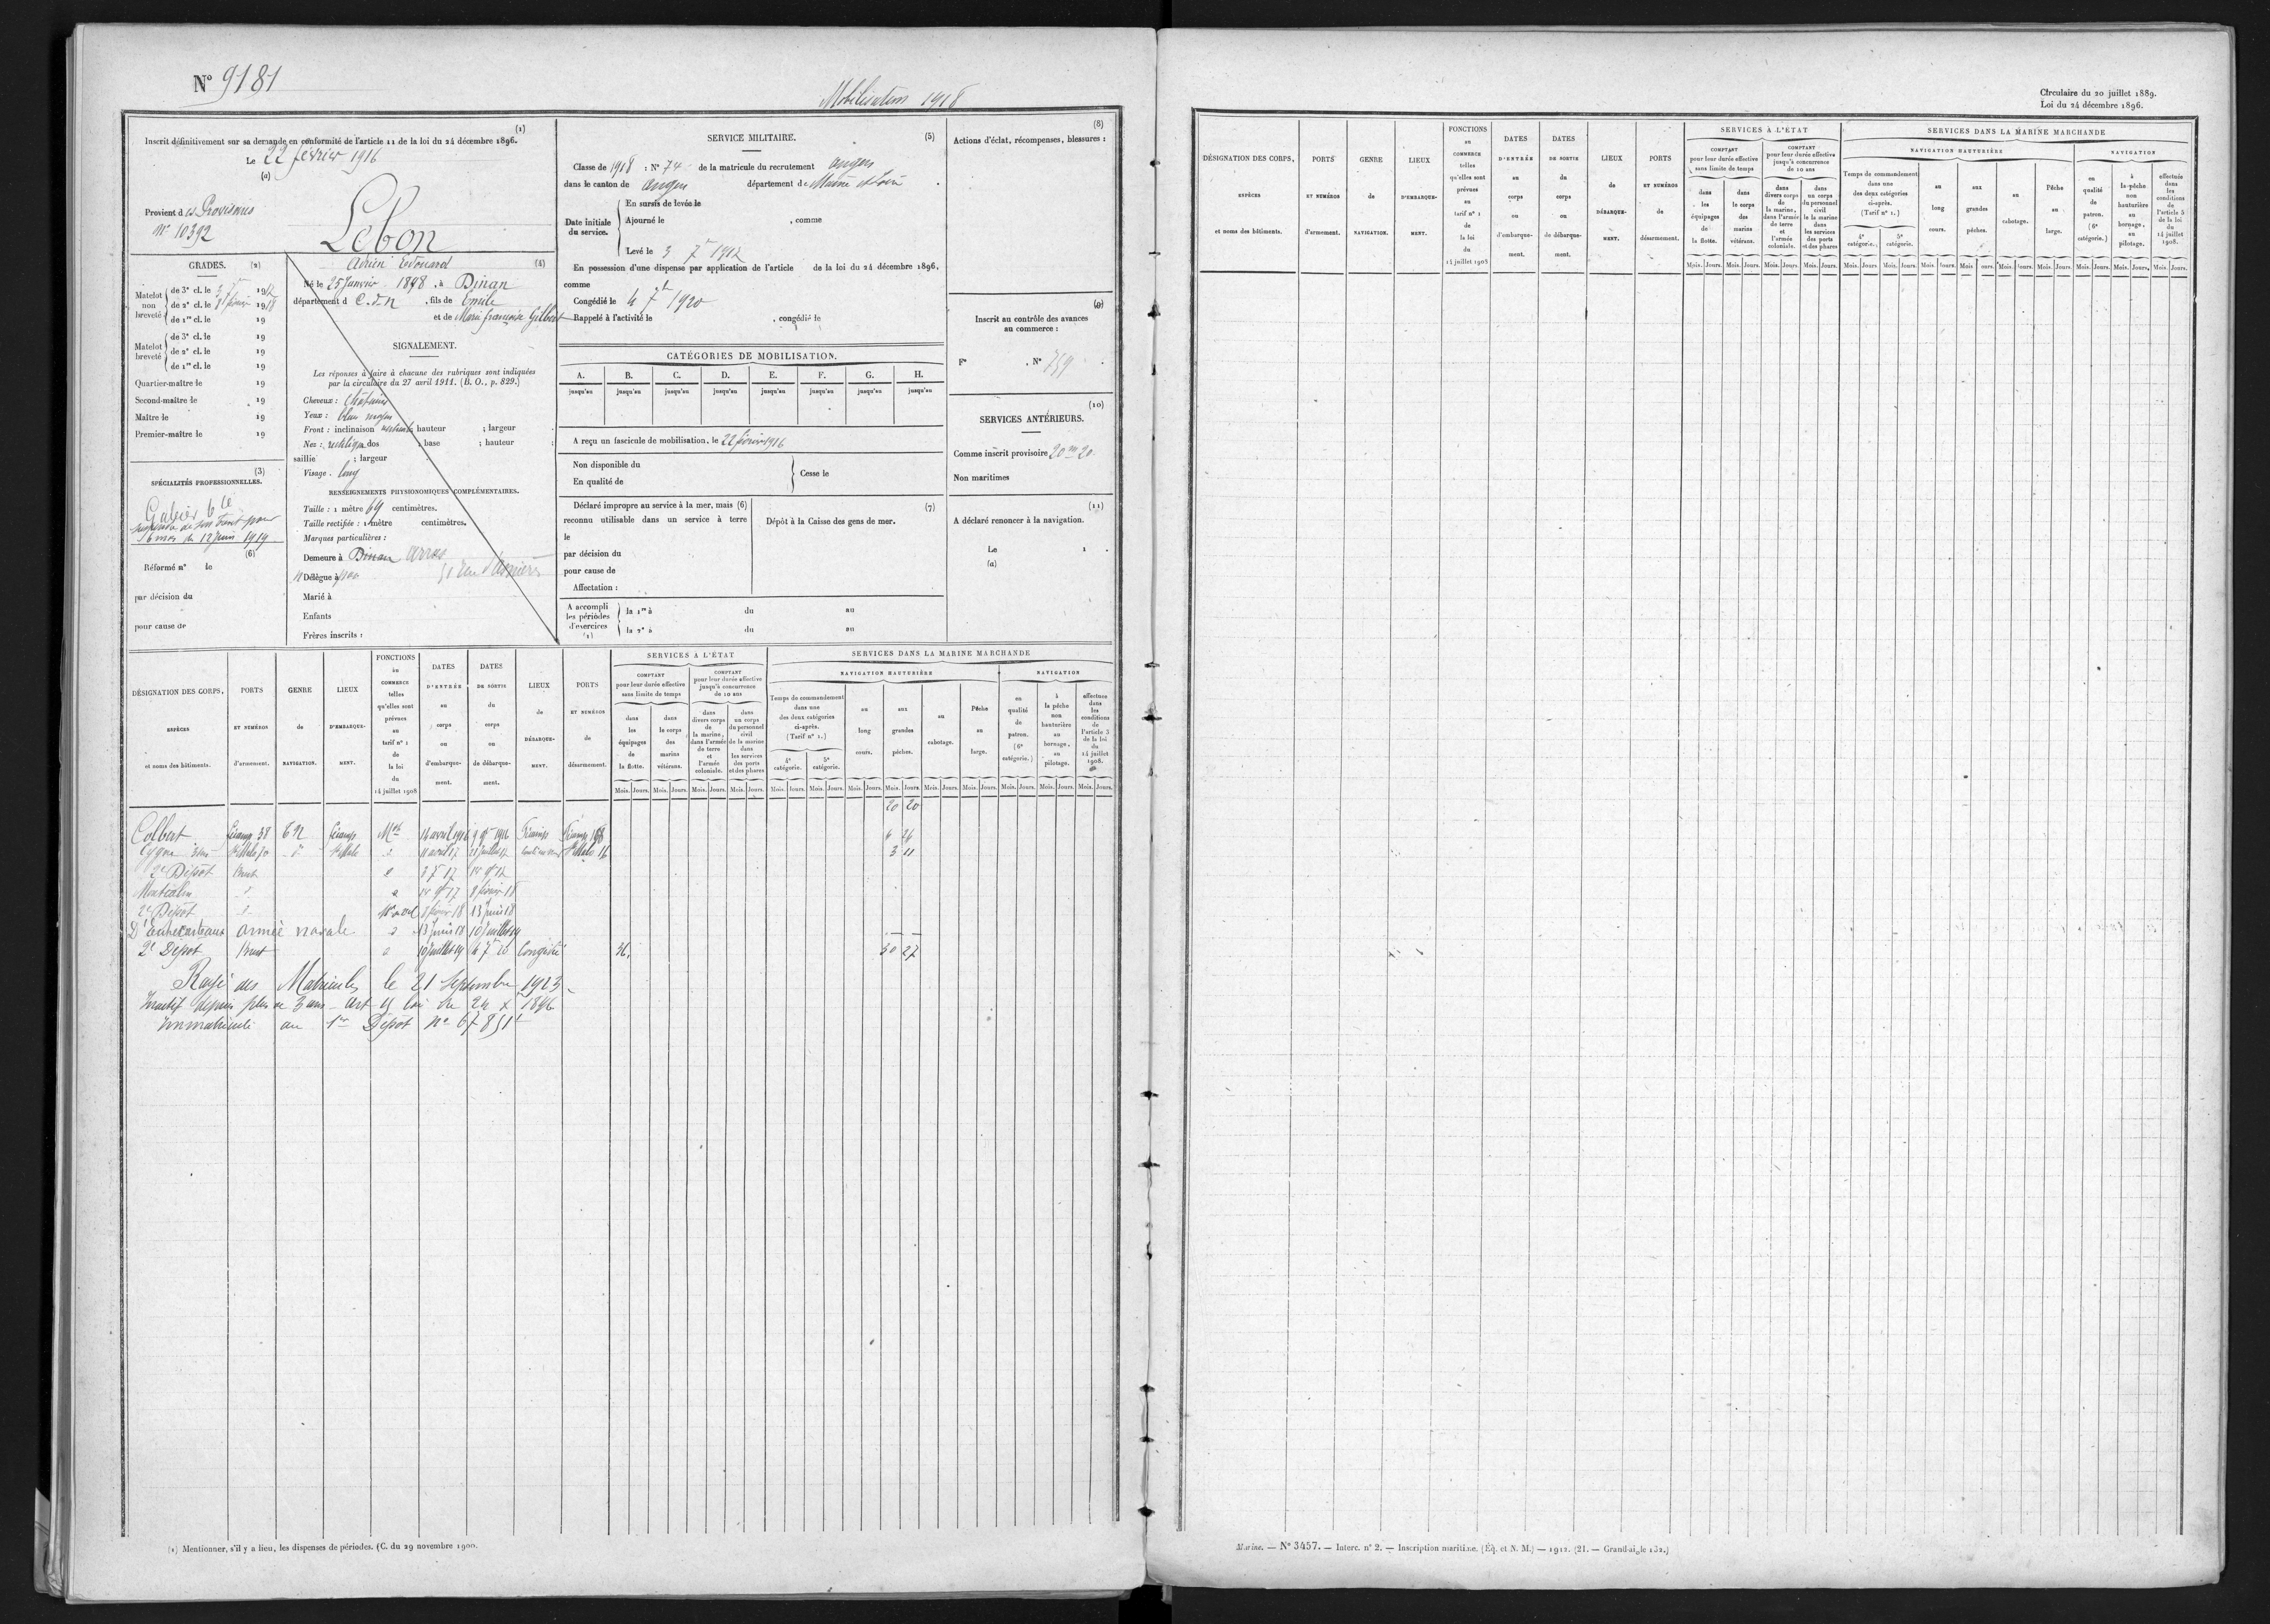 N° 9181
Mobilisation 1918
(1)
Inscrit définitivement sur sa demande en conformité de l'article 11 de la loi du 24 décembre 1896.
Le 22 février 1916
(a)
Provient d es Provisoires
N° 10392
Lebon
Adrien Edouard
(4)
Né le 25 Janvier 1898, à Dinan
département d C.d.N, fils de Emile
et de Marie françoise Gilbert
GRADES. (2)
Matelot non breveté
de 3e cl. le 3 7bre 1917
de 2e cl. le 3 février 1918
de 1re cl. le 19
Matelot breveté
de 3e cl. le 19
de 2e cl. le 19
de 1re cl. le 19
Quartier-maître le 19
Second-maître le 19
Maître le 19
Premier-maître le 19
(3)
SPÉCIALITÉS PROFESSIONNELLES.
Gabier
suspendu de son brevet pour
6 mois du 12 juin 1919
(6)
Réformé n° le
par décision du
pour cause de
SIGNALEMENT.
Les réponses à faire à chacune des rubriques sont indiquées
par la circulaire du 27 avril 1911. (B. O., p. 829.)
Cheveux : chatains
Yeux : bleu moyen
Front : inclinaison ; hauteur ; largeur
Nez : rectiligne dos ; base ; hauteur ;
saillie ; largeur
Visage. long
RENSEIGNEMENTS PHYSIONOMIQUES COMPLÉMENTAIRES.
Taille : 1 mètre 69 centimètres.
Taille rectifiée : 1 mètre centimètres.
Marques particulières :
Demeure à Dinan Arras
Délègue à
Marié à
Enfants
Frères inscrits :
SERVICE MILITAIRE. (5)
Classe de 1918 : N° 74 de la matricule du recrutement Angers
dans le canton de Angers département de Maine et Loire
Date initiale du service.
En sursis de levée le
Ajourné le , comme
Levé le 3 7bre 1917
En possession d'une dispense par application de l'article de la loi du 24 décembre 1896,
comme
Congédié le 4 7bre 1920
Rappelé à l'activité le , congédié le
CATÉGORIES DE MOBILISATION.
A. B. C. D. E. F. G. H.
jusqu'au jusqu'au jusqu'au jusqu'au jusqu'au jusqu'au jusqu'au jusqu'au
A reçu un fascicule de mobilisation, le 22 février 1916
Non disponible du
En qualité de
Cesse le
Déclaré impropre au service à la mer, mais (6)
reconnu utilisable dans un service à terre
le
par décision du
pour cause de
Affectation :
(7)
Dépôt à la Caisse des gens de mer.
A accompli les périodes d'exercices (1)
la 1re à du au
la 2e à du au
(8)
Actions d'éclat, récompenses, blessures :
(9)
Inscrit au contrôle des avances
au commerce :
F° . N° 759
(10)
SERVICES ANTÉRIEURS.
Comme inscrit provisoire 20 m 20
Non maritimes
(11)
A déclaré renoncer à la navigation.
Le 1
(a)
DÉSIGNATION DES CORPS, ESPÈCES et noms des bâtiments.
PORTS ET NUMÉROS d'armement.
GENRE de NAVIGATION.
LIEUX D'EMBARQUEMENT.
FONCTIONS au COMMERCE telles qu'elles sont prévues au tarif n° 1 de la loi du 14 juillet 1908
DATES D'ENTRÉE au corps ou d'embarquement.
DATES DE SORTIE du corps ou de débarquement.
LIEUX de DÉBARQUEMENT.
PORTS ET NUMÉROS de désarmement.
SERVICES A L'ÉTAT
COMPTANT pour leur durée effective sans limite de temps
dans les équipages de la flotte.
dans le corps des marins vétérans.
COMPTANT pour leur durée effective jusqu'à concurrence de 10 ans
dans divers corps de la marine, dans l'armée de terre et l'armée coloniale.
dans un corps du personnel civil de la marine dans les services des ports et des phares
SERVICES DANS LA MARINE MARCHANDE
NAVIGATION HAUTURIÈRE
Temps de commandement dans une des deux catégories ci-après. (Tarif n° 1.)
4e catégorie. 5e catégorie.
au long cours.
aux grandes pêches.
au cabotage.
Pêche au large.
NAVIGATION
en qualité de patron. (6e catégorie.)
à la pêche non hauturière au bornage, au pilotage.
effectuée dans les conditions de l'article 5 de la loi du 14 juillet 1908.
Mois. Jours. Mois. Jours. Mois. Jours. Mois. Jours. Mois. Jours. Mois. Jours. Mois. Jours. Mois. Jours. Mois. Jours. Mois. Jours. Mois. Jours. Mois. Jours. Mois. Jours.
20 20
Colbert Fécamp 38 TN Fécamp Mot 14 avril 1916 9 9bre 1916 Fécamp Fécamp 168 6 26
Cygne St Malo d° St Malo d 11 avril 17 21 juillet 17 St Malo 16 3 11
2e Dépôt Brest d 3 7 17 9bre 17
Montcalm d d 9bre 17 8 février 18
2e Dépôt d 8 février 18 13 juin 18
D'Entrecasteaux armée navale d 13 juin 18 10 juillet 19
2e Dépôt Brest d 10 juillet 19 4 7bre 20 Congédié 36 30 27
Rayé des Matricules le 21 Septembre 1923
Inactif depuis plus de 3 ans - Art 11 loi du 24 Xbre 1896
Immatriculé au 1er Dépôt n° 67851
(1) Mentionner, s'il y a lieu, les dispenses de périodes. (C. du 29 novembre 1900.
Circulaire du 20 juillet 1889.
Loi du 24 décembre 1896.
DÉSIGNATION DES CORPS, ESPÈCES et noms des bâtiments.
PORTS ET NUMÉROS d'armement.
GENRE de NAVIGATION.
LIEUX D'EMBARQUEMENT.
FONCTIONS au COMMERCE telles qu'elles sont prévues au tarif n° 1 de la loi du 14 juillet 1908
DATES D'ENTRÉE au corps ou d'embarquement.
DATES DE SORTIE du corps ou de débarquement.
LIEUX de DÉBARQUEMENT.
PORTS ET NUMÉROS de désarmement.
SERVICES À L'ÉTAT
COMPTANT pour leur durée effective sans limite de temps
dans les équipages de la flotte.
dans le corps des marins vétérans.
COMPTANT pour leur durée effective jusqu'à concurrence de 10 ans
dans divers corps de la marine, dans l'armée de terre et l'armée coloniale.
dans un corps du personnel civil de la marine dans les services des ports et des phares
SERVICES DANS LA MARINE MARCHANDE
NAVIGATION HAUTURIÈRE
Temps de commandement dans une des deux catégories ci-après. (Tarif n° 1.)
4e catégorie. 5e catégorie.
au long cours.
aux grandes pêches.
au cabotage.
Pêche au large.
NAVIGATION
en qualité de patron. (6e catégorie.)
à la pêche non hauturière au bornage, au pilotage.
effectuée dans les conditions de l'article 5 de la loi du 14 juillet 1908.
Mois. Jours. Mois. Jours. Mois. Jours. Mois. Jours. Mois. Jours. Mois. Jours. Mois. Jours. Mois. Jours. Mois. Jours. Mois. Jours. Mois. Jours. Mois. Jours. Mois. Jours.
Marine. — N° 3457. — Interc. n° 2. — Inscription maritime. (Éq. et N. M.) — 1912. (21. — Grand-aigle 132.)